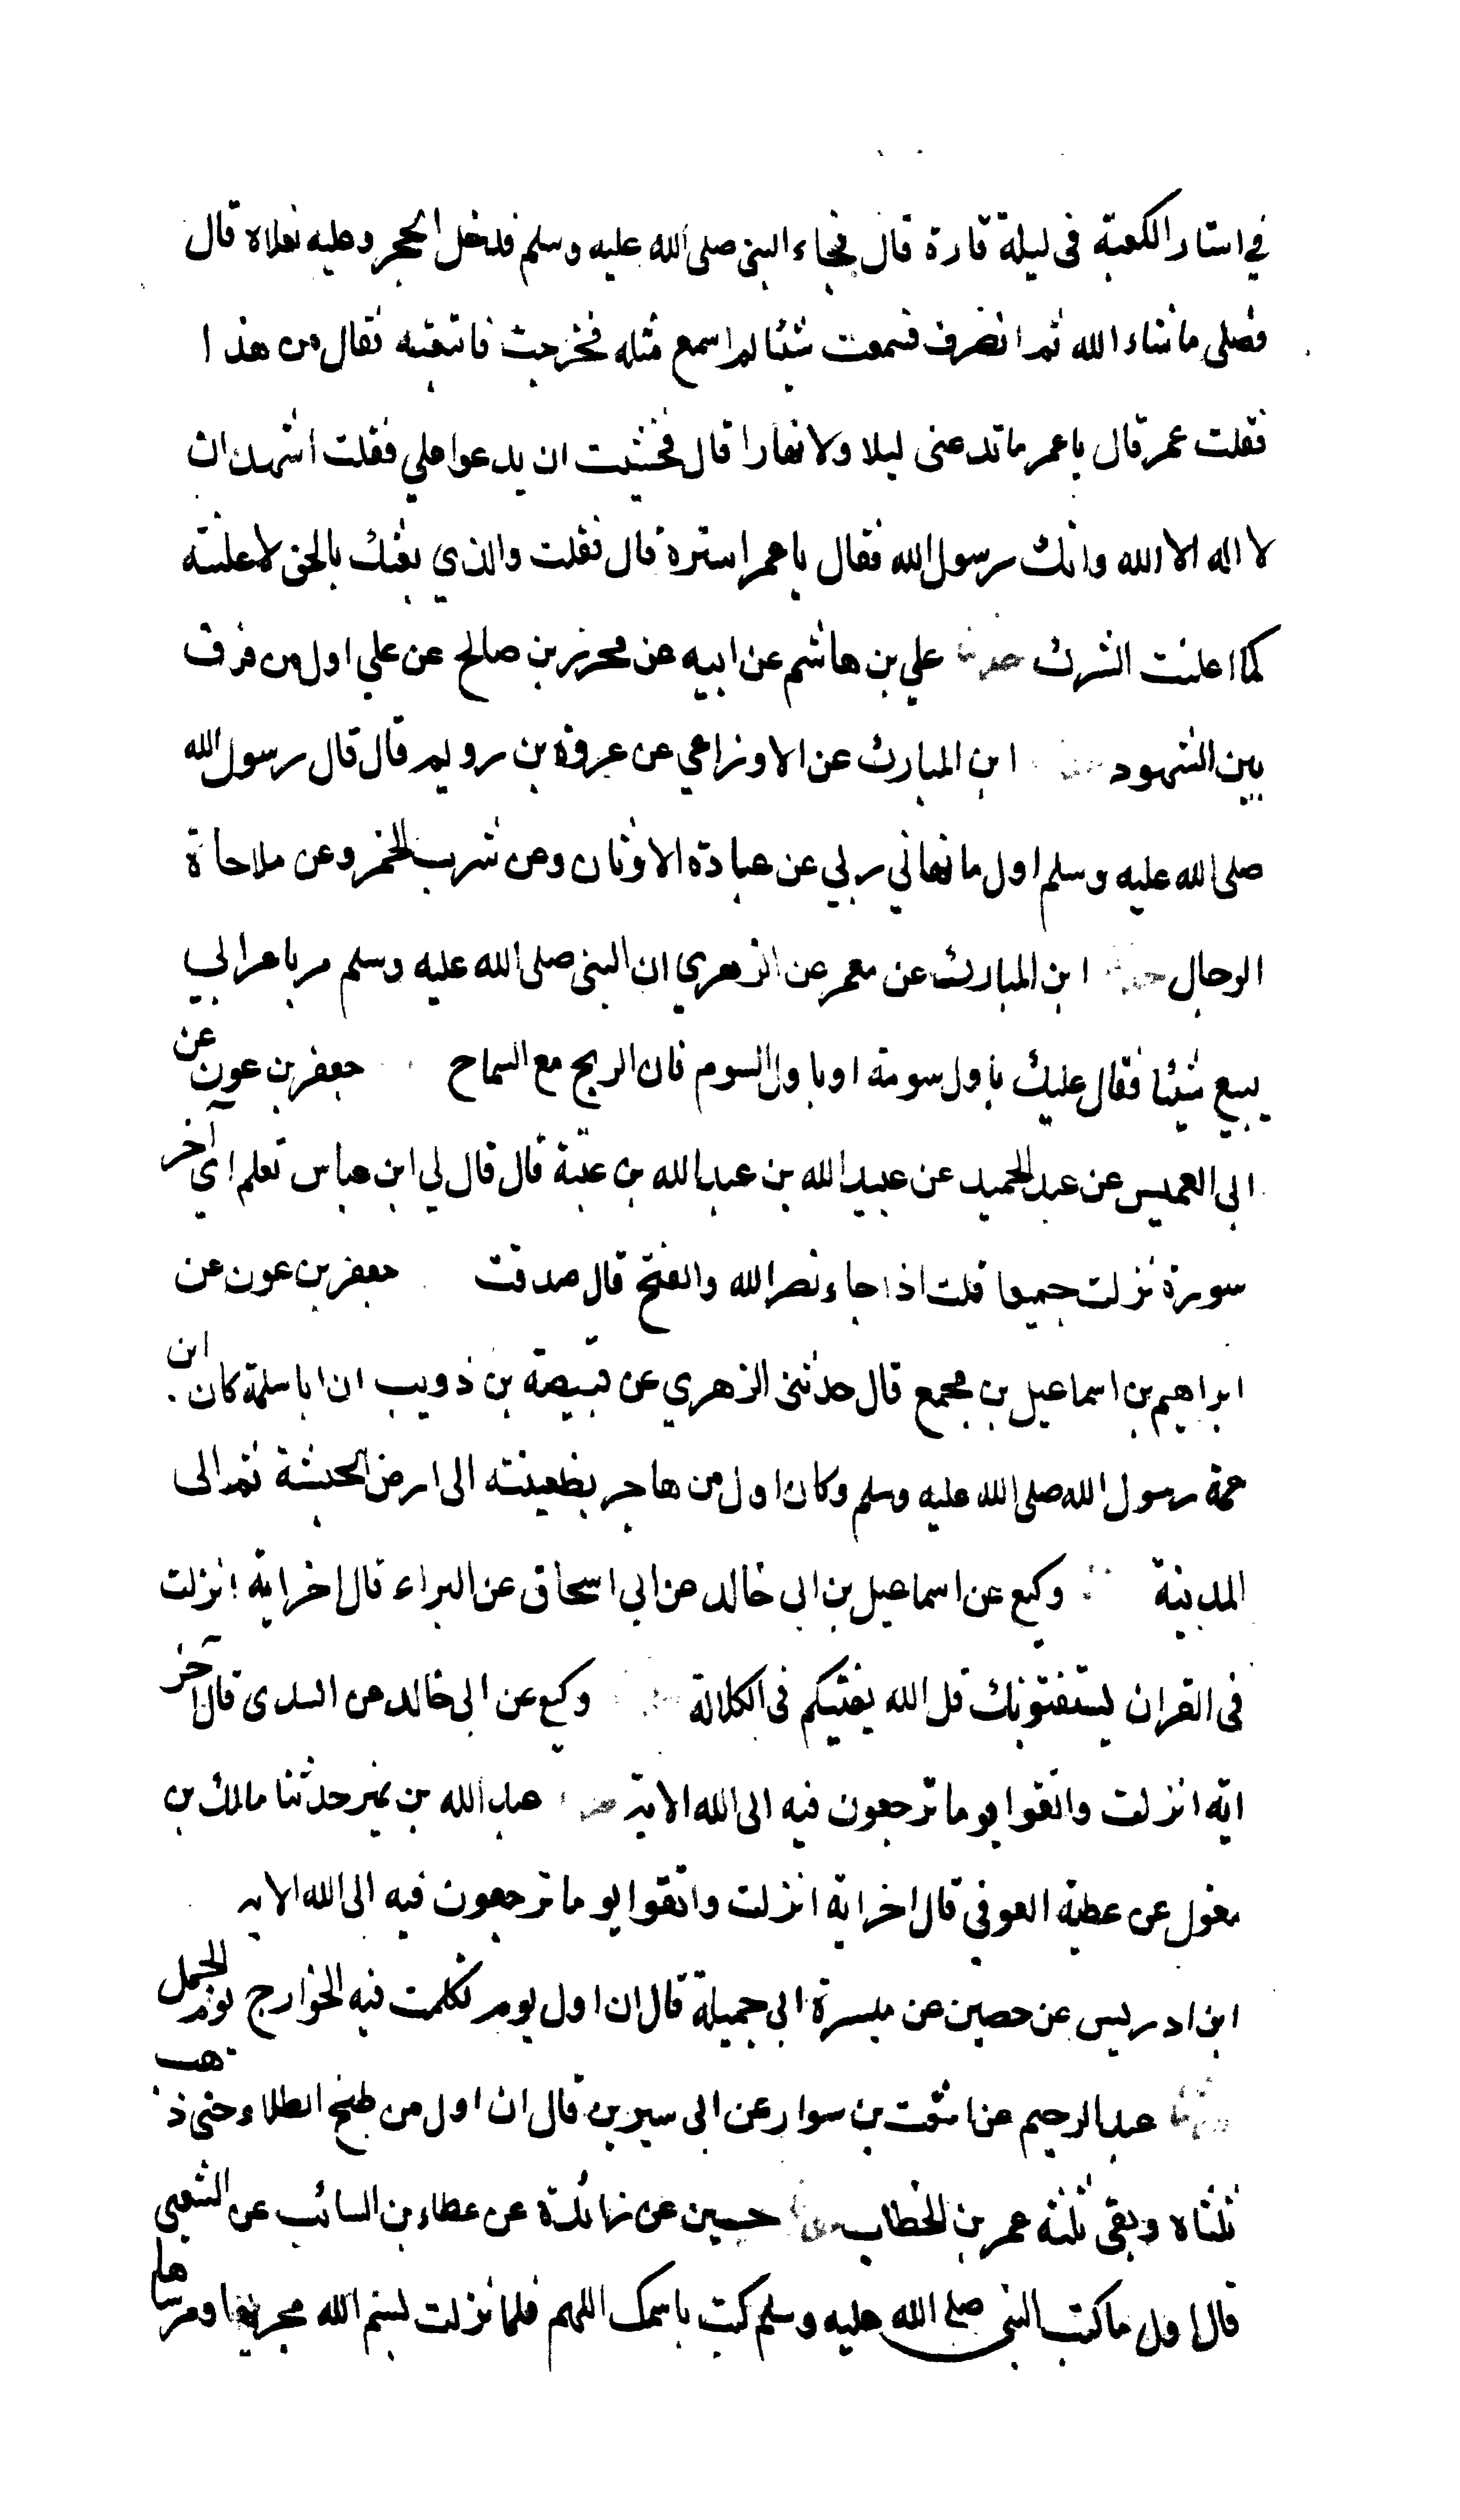 في استار الكعبة في ليلة قارة قال فجاء النبي صلى الله عليه وسلم فدخل الحجر وعليه نعلاه قال
فصلى ما شاء الله ثم انصرف فسمعت شيئا لم اسمع مثله فخرجت فاتبعته فقال من هذا
فقلت عمر قال يا عمر ما تدعني ليلا ولا نهارا قال فخشيت ان يدعو علي فقلت اشهد ان
لا اله الا الله وانك رسول الله فقال يا عمر استره قال فقلت والذي بعثك بالحق لاعلننه
كما اعلنت الشرك حدثنا علي بن هاشم عن ابيه عن محرز بن صالح عن علي اول من فرق
بين الشهود ابن المبارك عن الاوزاعي عن عروة بن رويم قال قال رسول الله
صلى الله عليه وسلم اول ما نهاني ربي عن عبادة الاوثان وعن شرب الخمر وعن ملاحاة
الرجال حدثنا ابن المبارك عن معمر عن الزهري ان النبي صلى الله عليه وسلم مر باعرابي
يبيع شيئا فقال عليك باول سومة او باول السوم فان الربح مع السماح جعفر بن عون عن
ابي العميس عن عبد الحميد عن عبيد الله بن عبد الله بن عتبة قال قال لي ابن عباس تعلم اي آخر
سورة نزلت جميعا قلت اذا جاء نصر الله والفتح قال صدقت جعفر بن عون عن
ابراهيم بن اسماعيل بن مجمع قال حدثني الزهري عن قبيصة بن ذويب ان ابا سلمة كان ابن
عمة رسول الله صلى الله عليه وسلم وكان اول من هاجر بظعينته الى ارض الحبشة ثم الى
المدينة وكيع عن اسماعيل بن ابي خالد عن ابي اسحاق عن البراء قال اخر اية انزلت
في القران يستفتونك قل الله يفتيكم في الكلالة وكيع عن ابي خالد عن السدي قال آخر
اية انزلت واتقوا يوما ترجعون فيه الى الله الاية حدثنا عبد الله بن نمير حدثنا مالك بن
مغول عن عطية العوفي قال اخر اية انزلت واتقوا يوما ترجعون فيه الى الله الاية
ابن ادريس عن حصين عن ميسرة ابي جميلة قال ان اول يوم تكلمت فيه الخوارج يوم الجمل
حدثنا عبد الرحيم عن اشعث بن سوار عن ابي سيرين قال ان اول من طبخ الطلاء حتى ذهب
ثلثاه وبقي ثلثه عمر بن الخطاب حدثنا حسين عن زائدة عن عطاء بن السائب عن الشعبي
قال اول ما كتب النبي صلى الله عليه وسلم كتب باسمك اللهم فلما نزلت بسم الله مجريها ومرساها